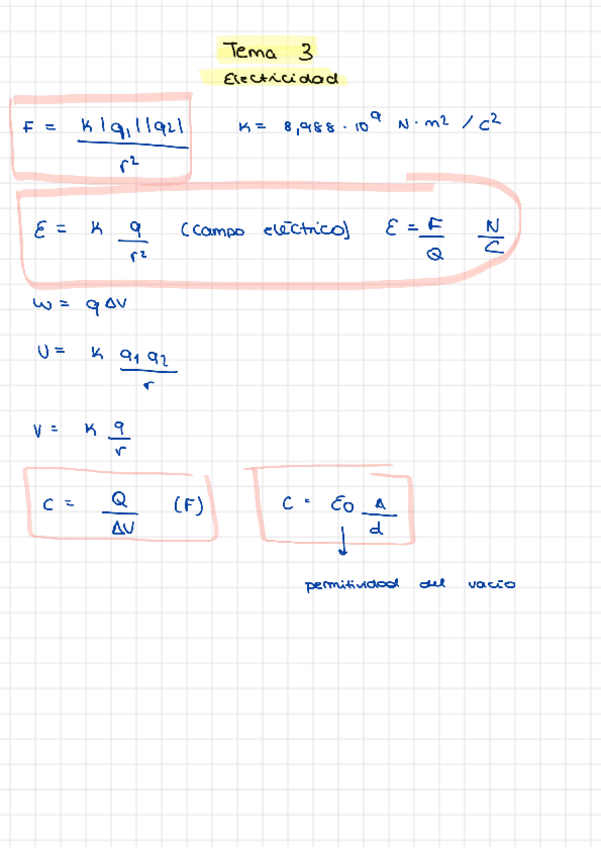 Tema 3
Electricidad
F = K |q1| |q2| / r² K = 8,988 · 10⁹ N · m² / C²
E = K q / r² (campo eléctrico) E = F / Q N / C
W = q ΔV
U = K q1 q2 / r
V = K q / r
C = Q / ΔV (F) C = ε0 A / d
↓
permitividad del vacio